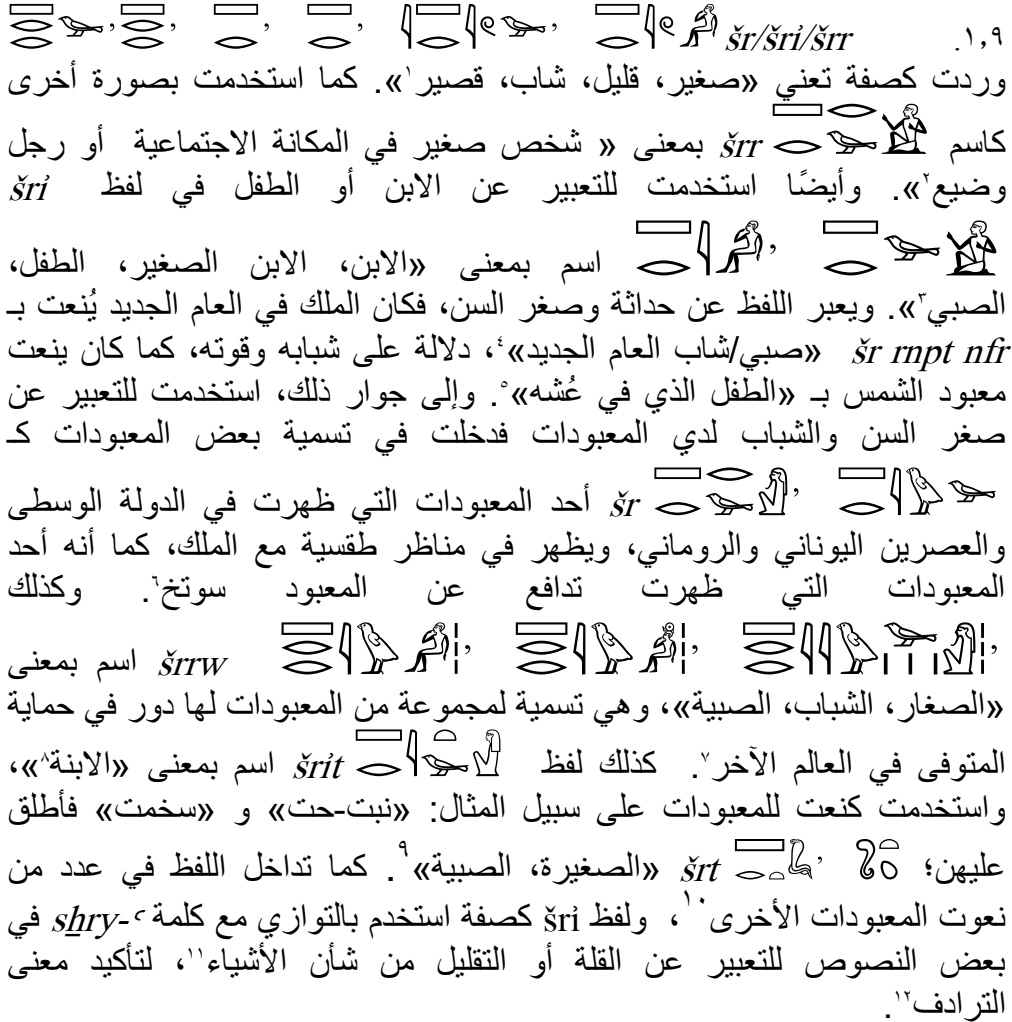 ١,٩. šr/šrἰ/šrr
وردت كصفة تعني «صغير، قليل، شاب، قصير١». كما استخدمت بصورة أخرى
كاسم šrr بمعنى « شخص صغير في المكانة الاجتماعية أو رجل
وضيع٢». وأيضًا استخدمت للتعبير عن الابن أو الطفل في لفظ šrἰ
اسم بمعنى «الابن، الابن الصغير، الطفل،
الصبي٣». ويعبر اللفظ عن حداثة وصغر السن، فكان الملك في العام الجديد يُنعت بـ
šr rnpt nfr «صبي/شاب العام الجديد»٤، دلالة على شبابه وقوته، كما كان ينعت
معبود الشمس بـ «الطفل الذي في عُشه»٥. وإلى جوار ذلك، استخدمت للتعبير عن
صغر السن والشباب لدي المعبودات فدخلت في تسمية بعض المعبودات كـ
šr أحد المعبودات التي ظهرت في الدولة الوسطى
والعصرين اليوناني والروماني، ويظهر في مناظر طقسية مع الملك، كما أنه أحد
المعبودات التي ظهرت تدافع عن المعبود سوتخ٦. وكذلك
šrrw اسم بمعنى
«الصغار، الشباب، الصبية»، وهي تسمية لمجموعة من المعبودات لها دور في حماية
المتوفى في العالم الآخر٧. كذلك لفظ šrἰt اسم بمعنى «الابنة٨»،
واستخدمت كنعت للمعبودات على سبيل المثال: «نبت-حت» و «سخمت» فأطلق
عليهن؛ šrt «الصغيرة، الصبية»٩. كما تداخل اللفظ في عدد من
نعوت المعبودات الأخرى١٠، ولفظ šrἰ كصفة استخدم بالتوازي مع كلمة sẖry-ꜥ في
بعض النصوص للتعبير عن القلة أو التقليل من شأن الأشياء١١، لتأكيد معنى
الترادف١٢.